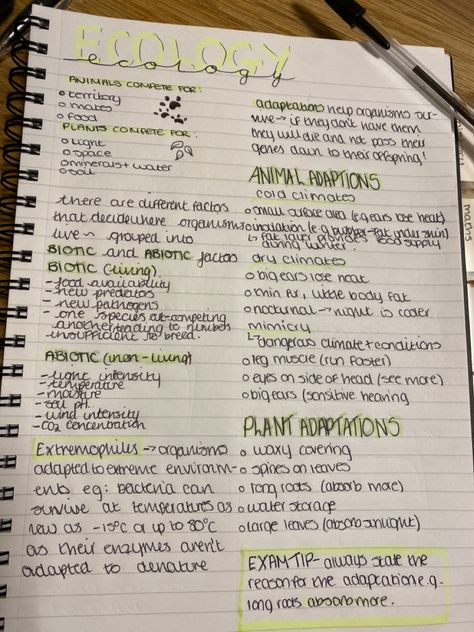 ECOLOGY
ecology
ANIMALS COMPETE FOR:
territory
mates
food
PLANTS COMPETE FOR:
light
space
minerals + water
soil
there are different factors
that decide where organisms
live ~ grouped into
BIOTIC and ABIOTIC factors
BIOTIC (living)
- food availability
- new predators
- new pathogens
- one species out-competing
another leading to numbers
insufficient to breed.
ABIOTIC (non-living)
- light intensity
- temperature
- moisture
- soil pH
- wind intensity
- CO2 concentration
Extremophiles → organisms
adapted to extreme environm-
ents eg: bacteria can
survive at temperatures as
low as -15°C or up to 80°C
as their enzymes aren't
adapted to denature
adaptations help organisms sur-
vive → if they don't have them
they will die and not pass their
genes down to their offspring!
ANIMAL ADAPTIONS
cold climates
small surface area (eg ears lose heat)
insulation (e.g blubber-fat under skin)
↳ fat layer provides food supply
during winter
dry climates
big ears lose heat
thin fur, little body fat
nocturnal → night is cooler
mimicry
↳ dangerous climate + conditions
leg muscle (run faster)
eyes on side of head (see more)
big ears (sensitive hearing
PLANT ADAPTATIONS
waxy covering
spines on leaves
long roots (absorb more)
water storage
large leaves (absorb sunlight)
EXAM TIP - always state the
reason for the adaptation e.g.
long roots absorb more.